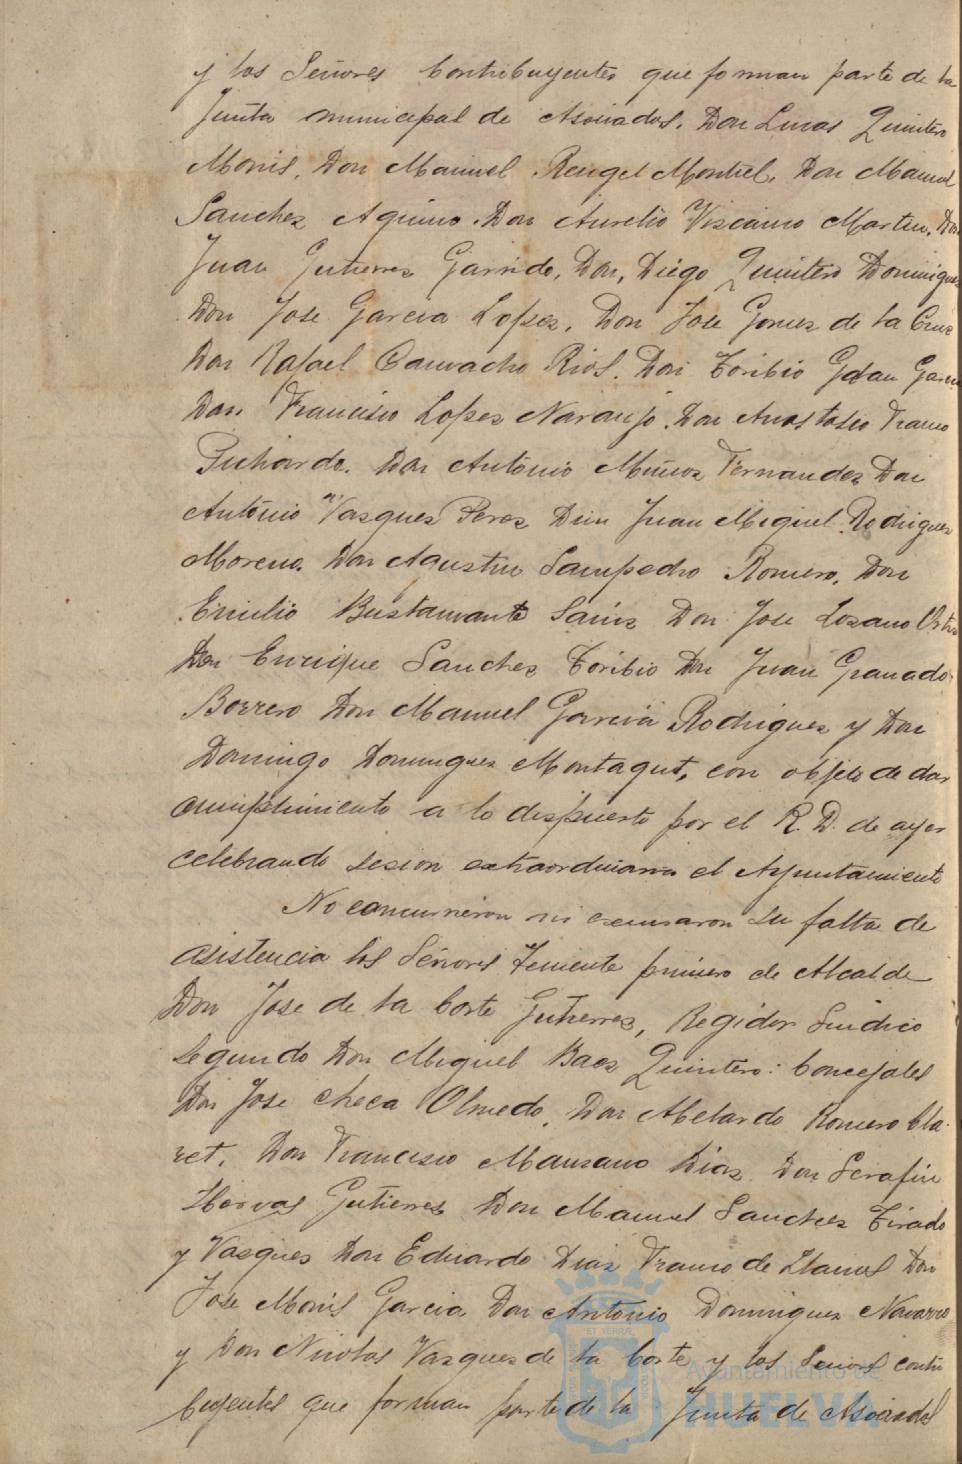 y los Señores Contribuyentes que forman parte de la
Junta municipal de Asociados, Don Lucas Quintero
Moris, Don Manuel Rengel Montiel, Don Manuel
Sanchez Aquino, Don Aurelio Viscaino Martin, Don
Juan Gutierres Garrido, Don, Diego Quintero Domingues
Don Jose Garcia Lopez, Don Jose Gomez de la Cruz
Don Rafael Camacho Rios, Don Toribio Galan Garcia
Don Francisco Lopez Naranjo, Don Anastasio Franco
Pichardo, Don Antonio Muñoz Fernandez Don
Antonio Vasques Perez Don Juan Miguel Rodrigues
Moreno, Don Agustin Sampedro Romero, Don
Emilio Bustamante Sainz Don Jose Lozano
Don Enrique Sanchez Toribio Don Juan Granado
Borrero Don Manuel Garcia Rodriguez y Don
Domingo Domingues Montagut, con objeto de dar
cumplimiento a lo dispuesto por el R. D. de ayer
celebrando sesion extraordinaria el Ayuntamiento
No concurrieron ni excusaron su falta de
asistencia los Señores Teniente primero de Alcalde
Don Jose de la Corte Gutierrez, Regidor Sindico
segundo Don Miguel Baez Quintero: Concejales
Don Jose Checa Olmedo, Don Abelardo Romero Cla-
ret, Don Francisco Manzano Diaz Don Serafin
Gutierres Don Manuel Sanchez Tirado
y Vasques Don Eduardo Diaz Franco de Llanos Don
Jose Moris Garcia Don Antonio Domingues Navarro
y Don Nicolas Vasques de la Corte y los Señores contri
buyentes que forman parte de la Junta de Asociados
Ayuntamiento de
HUELVA